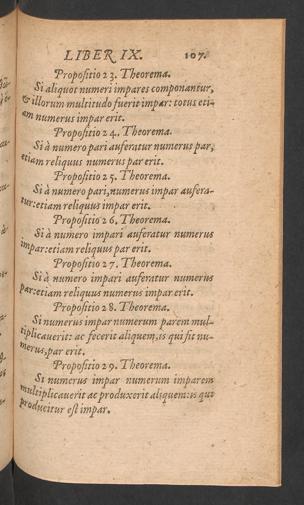 LIBER IX. 107.
Propositio 23. Theorema.
Si aliquot numeri impares componantur,
& illorum multitudo fuerit impar: totus eti-
am numerus impar erit.
Propositio 24. Theorema.
Si à numero pari auferatur numerus par,
etiam reliquus numerus par erit.
Propositio 25. Theorema.
Si à numero pari, numerus impar aufera-
tur: etiam reliquus impar erit.
Propositio 26. Theorema.
Si à numero impari auferatur numerus
impar: etiam reliquus par erit.
Propositio 27. Theorema.
Si à numero impari auferatur numerus
par: etiam reliquus numerus impar erit.
Propositio 28. Theorema.
Si numerus impar numerum parem mul-
tiplicauerit: ac fecerit aliquem, is qui fit nu-
merus, par erit.
Propositio 29. Theorema.
Si numerus impar numerum imparem
multiplicauerit ac produxerit aliquem: is qui
producitur est impar.